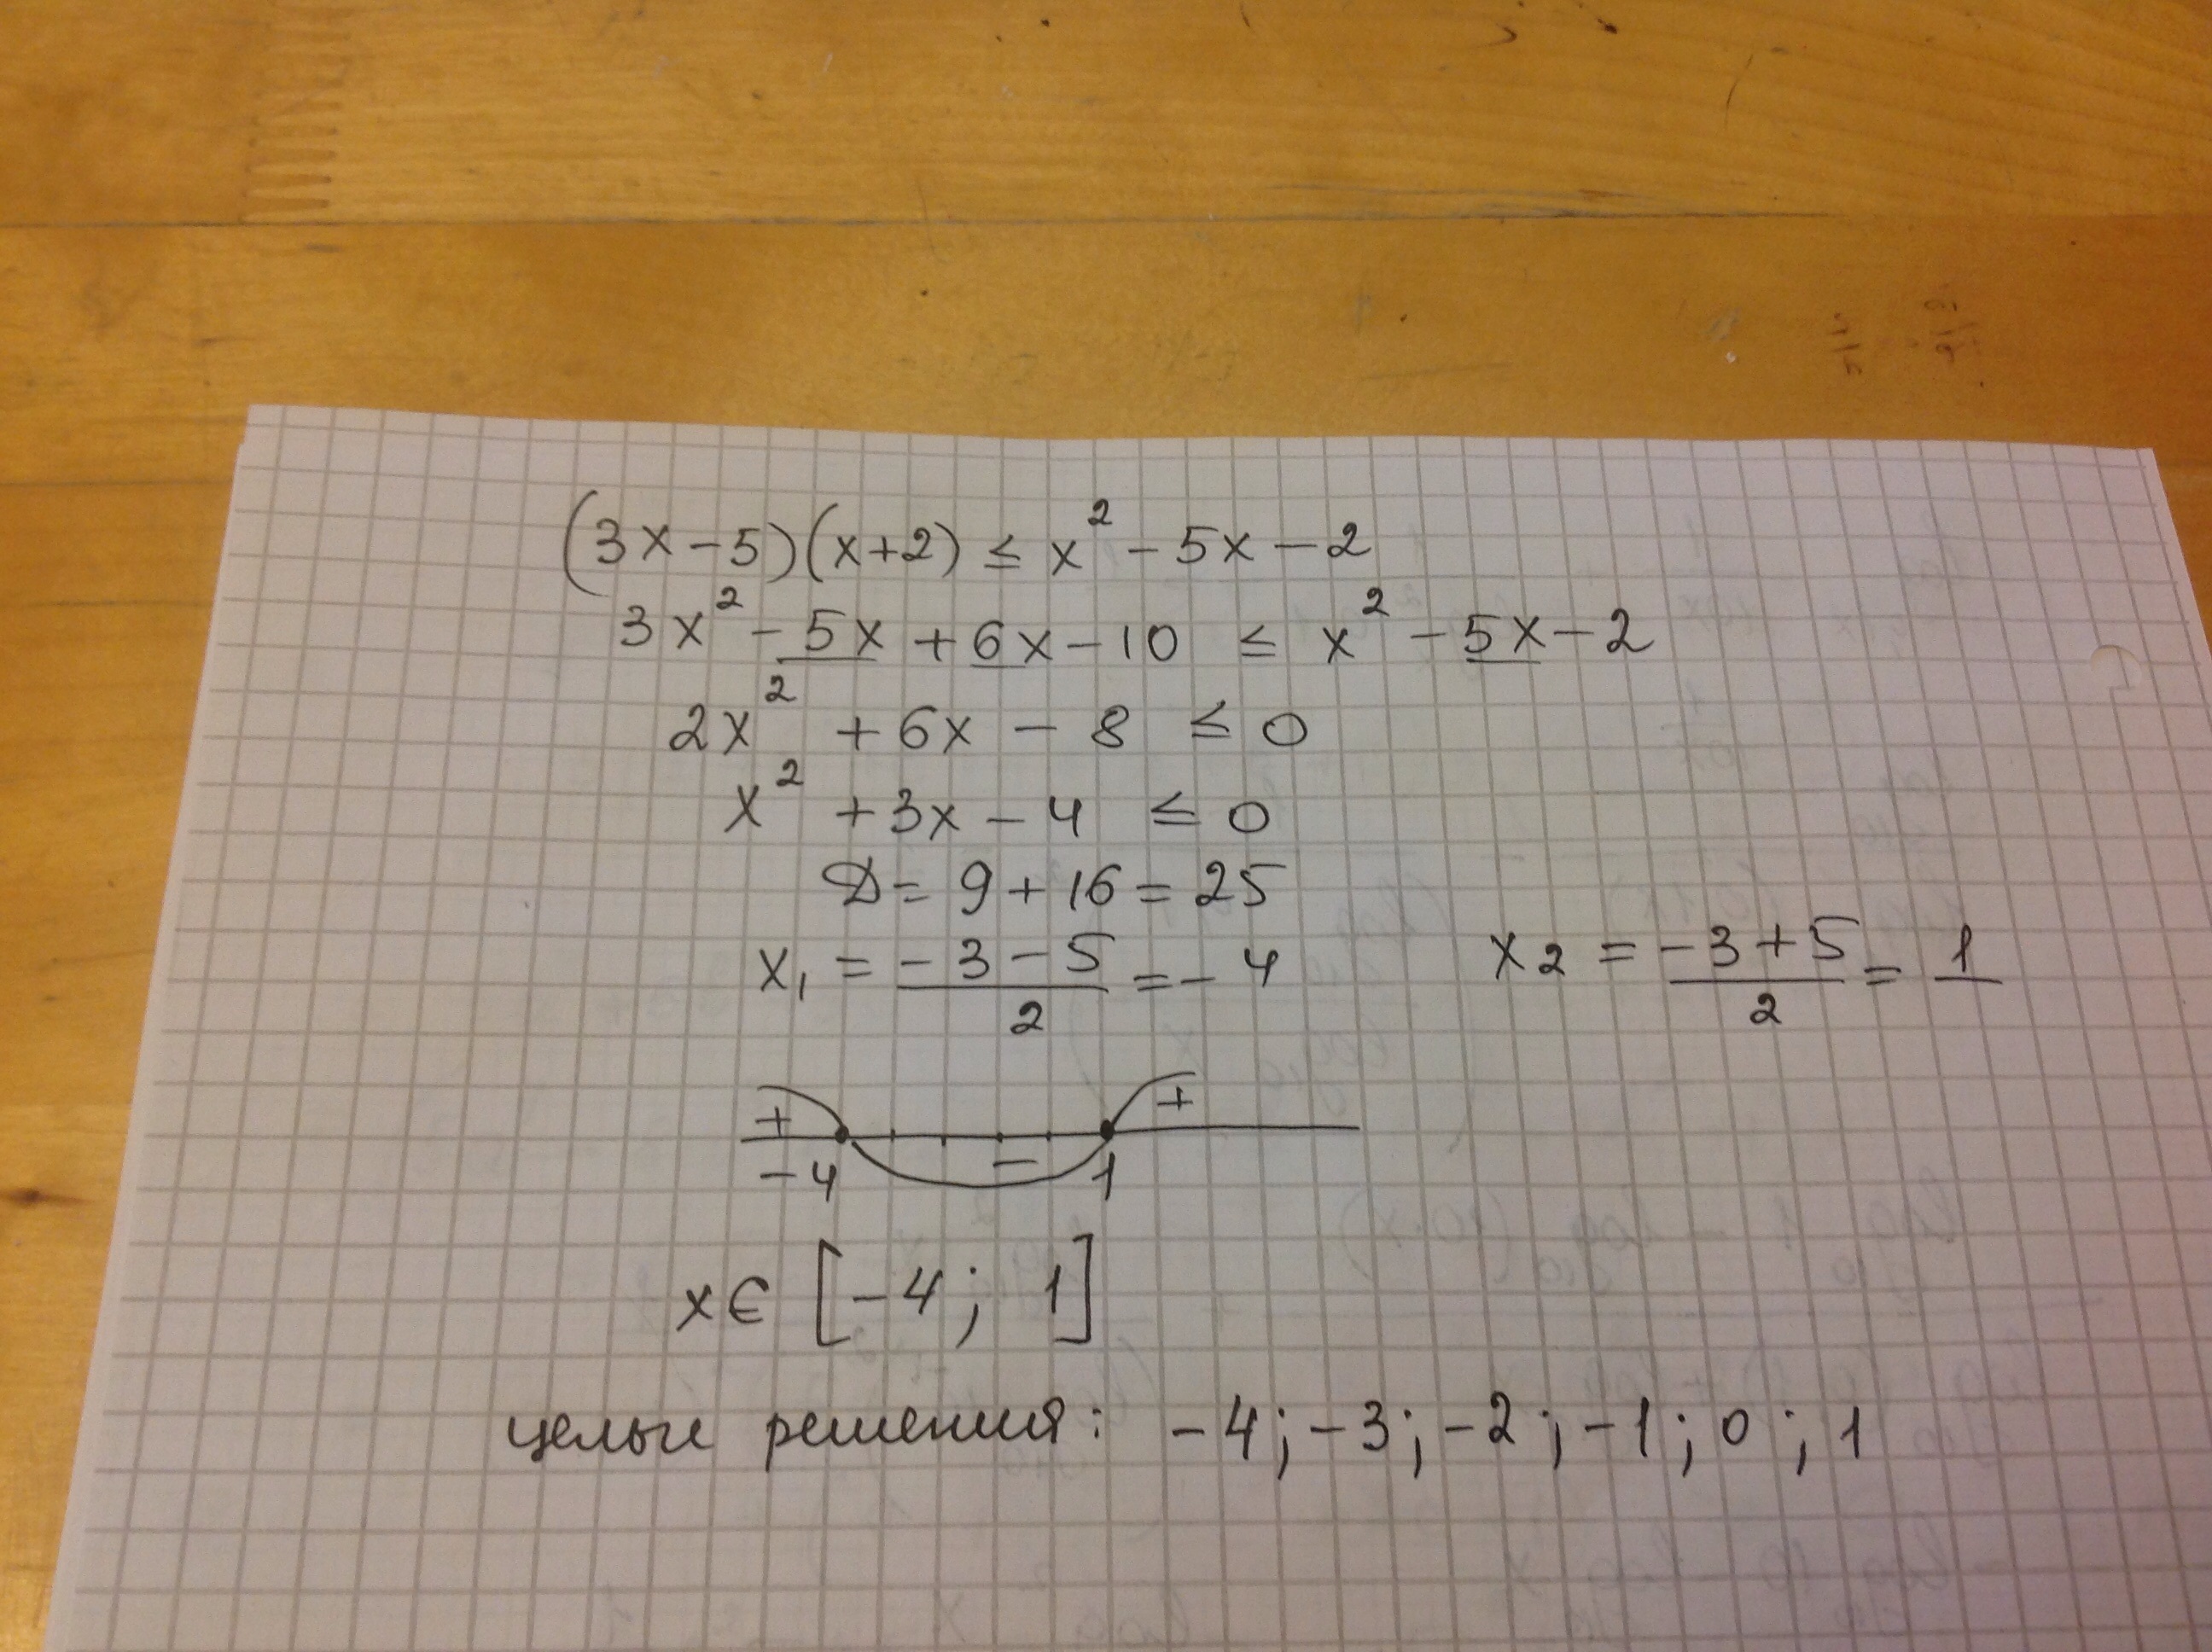 (3x-5)(x+2) ≤ x² - 5x - 2
3x² - 5x + 6x - 10 ≤ x² - 5x - 2
2x² + 6x - 8 ≤ 0
x² + 3x - 4 ≤ 0
D = 9 + 16 = 25
x₁ = (-3 - 5)/2 = -4   x₂ = (-3 + 5)/2 = 1
+ - +
-4 1
x ∈ [-4; 1]
целые решения: -4; -3; -2; -1; 0; 1